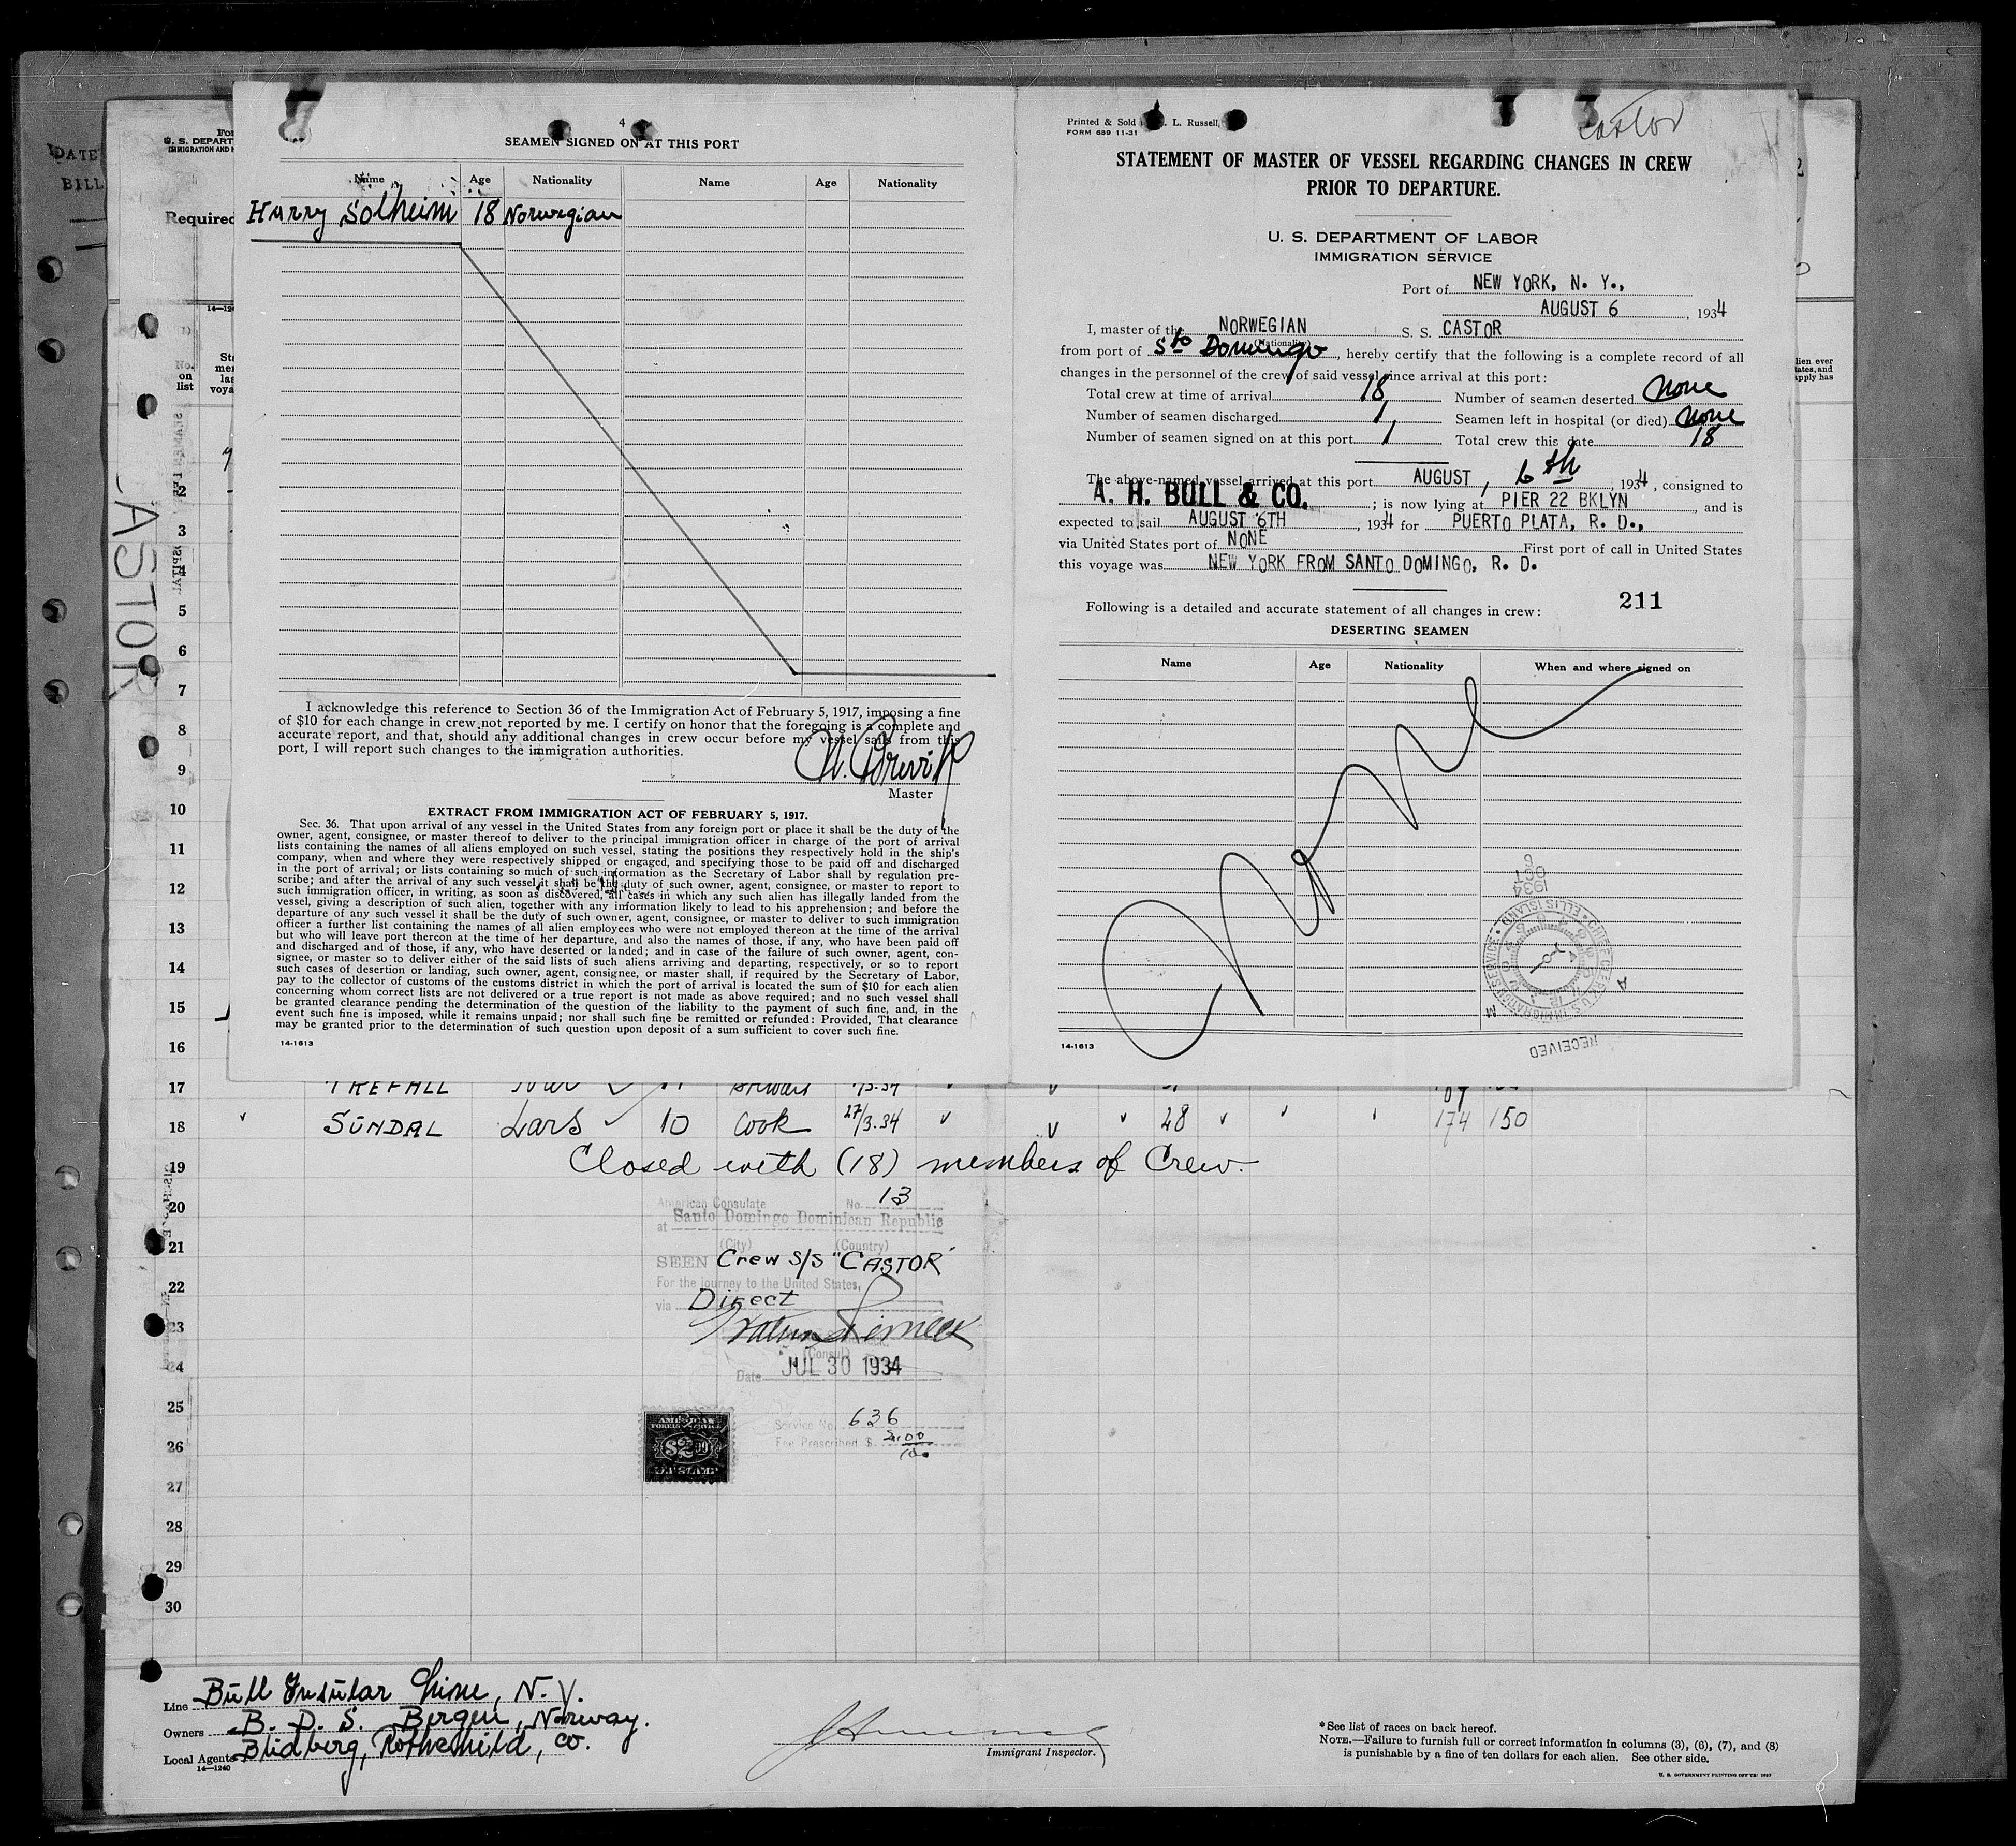 4
SEAMEN SIGNED ON AT THIS PORT
Name Age Nationality Name Age Nationality
Harry Solheim 18 Norwegian
I acknowledge this reference to Section 36 of the Immigration Act of February 5, 1917, imposing a fine
of $10 for each change in crew not reported by me. I certify on honor that the foregoing is a complete and
accurate report, and that, should any additional changes in crew occur before my vessel sails from this
port, I will report such changes to the immigration authorities.
Master
EXTRACT FROM IMMIGRATION ACT OF FEBRUARY 5, 1917.
Sec. 36. That upon arrival of any vessel in the United States from any foreign port or place it shall be the duty of the
owner, agent, consignee, or master thereof to deliver to the principal immigration officer in charge of the port of arrival
lists containing the names of all aliens employed on such vessel, stating the positions they respectively hold in the ship's
company, when and where they were respectively shipped or engaged, and specifying those to be paid off and discharged
in the port of arrival; or lists containing so much of such information as the Secretary of Labor shall by regulation pre-
scribe; and after the arrival of any such vessel it shall be the duty of such owner, agent, consignee, or master to report to
such immigration officer, in writing, as soon as discovered, all cases in which any such alien has illegally landed from the
vessel, giving a description of such alien, together with any information likely to lead to his apprehension; and before the
departure of any such vessel it shall be the duty of such owner, agent, consignee, or master to deliver to such immigration
officer a further list containing the names of all alien employees who were not employed thereon at the time of the arrival
but who will leave port thereon at the time of her departure, and also the names of those, if any, who have been paid off
and discharged and of those, if any, who have deserted or landed; and in case of the failure of such owner, agent, con-
signee, or master so to deliver either of the said lists of such aliens arriving and departing, respectively, or so to report
such cases of desertion or landing, such owner, agent, consignee, or master shall, if required by the Secretary of Labor,
pay to the collector of customs of the customs district in which the port of arrival is located the sum of $10 for each alien
concerning whom correct lists are not delivered or a true report is not made as above required; and no such vessel shall
be granted clearance pending the determination of the question of the liability to the payment of such fine, and, in the
event such fine is imposed, while it remains unpaid; nor shall such fine be remitted or refunded: Provided, That clearance
may be granted prior to the determination of such question upon deposit of a sum sufficient to cover such fine.
14-1613
Castor
Printed & Sold L. Russell,
FORM 689 11-31
STATEMENT OF MASTER OF VESSEL REGARDING CHANGES IN CREW
PRIOR TO DEPARTURE.
U. S. DEPARTMENT OF LABOR
IMMIGRATION SERVICE
Port of NEW YORK, N. Y.,
AUGUST 6, 1934
I, master of the NORWEGIAN S. S. CASTOR
(Nationality)
from port of Sto Domingo, hereby certify that the following is a complete record of all
changes in the personnel of the crew of said vessel since arrival at this port:
Total crew at time of arrival 18 Number of seamen deserted None
Number of seamen discharged 1, Seamen left in hospital (or died) None
Number of seamen signed on at this port 1 Total crew this date 18
The above-named vessel arrived at this port AUGUST, 6th, 1934, consigned to
A. H. BULL & CO. ; is now lying at PIER 22 BKLYN, and is
expected to sail AUGUST 6TH, 1934 for PUERTO PLATA, R. D.,
via United States port of NONE First port of call in United States
this voyage was NEW YORK FROM SANTO DOMINGO, R. D.
Following is a detailed and accurate statement of all changes in crew: 211
DESERTING SEAMEN
Name Age Nationality When and where signed on
None
1934 OCT 6
RECEIVED
14-1613
DATE
BILL
U. S. DEPART
IMMIGRATION AND
Required
14-12
No. on list
CASTOR
2
3
4
5
6
7
8
9
10
11
12
13
14
15
16
17 TREFALL
18 SUNDAL Lars 10 Cook 27/3.34 28 174 150
19 Closed with (18) members of Crew.
20 American Consulate No. 13
at Santo Domingo Dominican Republic
21 (City) (Country)
SEEN Crew S/S "CASTOR"
22 For the journey to the United States,
via Direct
23
(Consul)
24 Date JUL 30 1934
25 Service No. 636
26 Fee Prescribed $ 2.00/100
AMERICAN
FOREIGN SERVICE
$2.00
FEE STAMP
27
28
29
30
Line Bull Insular Line, N.Y.
Owners B. D. S. Bergen, Norway.
Local Agents Blidberg, Rothchild, Co.
14-1240
Immigrant Inspector.
*See list of races on back hereof.
NOTE.—Failure to furnish full or correct information in columns (3), (6), (7), and (8)
is punishable by a fine of ten dollars for each alien. See other side.
U. S. GOVERNMENT PRINTING OFFICE